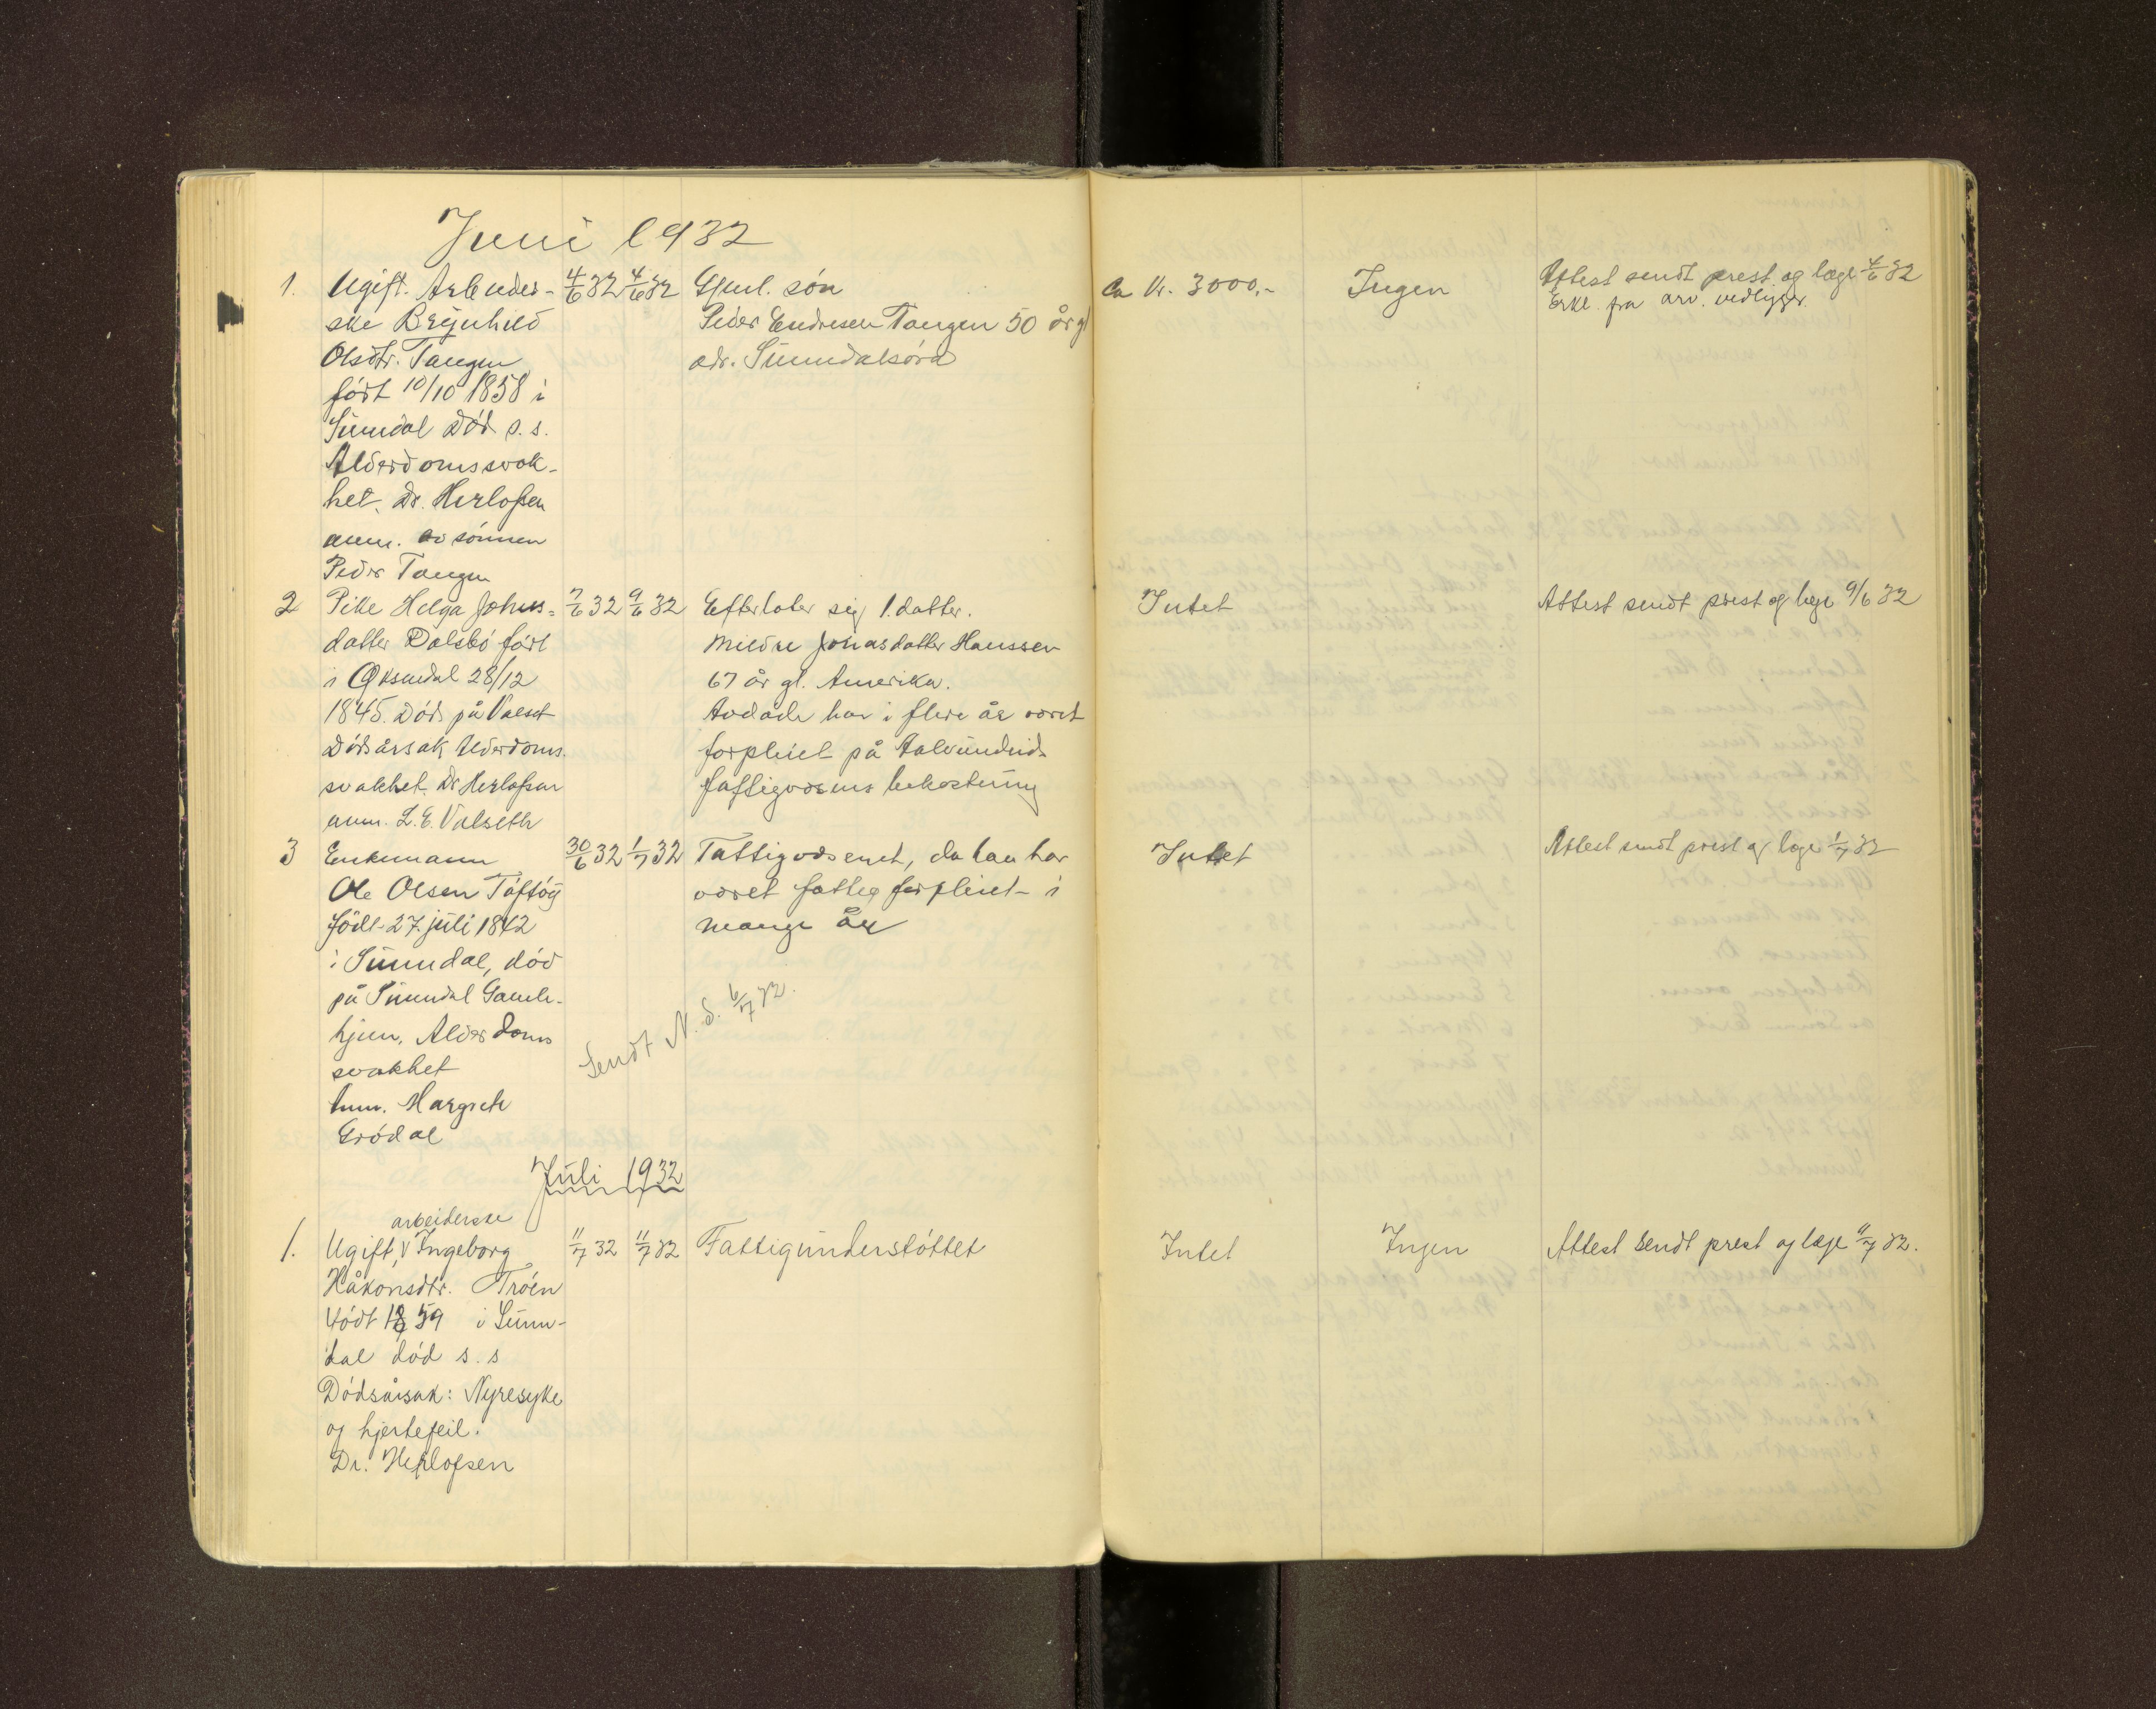 Juni 1932
1. Ugift. Arbeider-
ske Brynhild
Olsdtr. Tangen
født 10/10 1858 i
Sunndal død s. s.
Alderdomssvak-
het. Dr. Herlofsen
anm. av sønnen
Peder Tangen
4/6 32 4/6 32
Gjenl. søn
Peder Endresen Tangen 50 år gl
adr. Sunndalsøra
Ca Kr. 3000,-
Ingen
Attest sendt prest og læge 4/6 32
Erkl. fra arv. vedligger.
2 Pike Helga Johns-
datter Dalsbø født
i Øksendal 28/12
1845. Død på Valset
Dødsårsak Alderdoms.
svakhet. Dr Herlofsen
anm. L. E. Valseth
7/6 32 9/6 32
Efterlater sig 1. datter.
Jonasdatter Hanssen
67 år gl. Amerika.
Avdøde har i flere år været
forpleiet på Aalvundeid
fattigvæsens bekostning
Intet
Attest sendt prest og læge 9/6 32
3 Enkemann
Ole Olsen Tøftøy
født 27. juli 1842
i Sunndal, død
på Sunndal Gamle-
hjem. Alderdoms
svakhet
Anm. Margrete
Grødal
30/6 32 1/7 32
Fattigvæsenet, da han har
været fattig forpleiet i
mange år
Sendt N. S. 6/7 32.
Intet
Attest sendt prest og læge 1/7 32
Juli 1932
arbeiderske
1. Ugift, v Ingeborg
Håkonsdtr. Trøen
født 59 i Sunn-
dal død s. s
Dødsårsak: Nyresyke
og hjertefeil.
Dr. Herlofsen
11/7 32 11/7 32
Fattigunderstøttet
Intet
Ingen
Attest sendt prest og læge 11/7 32.